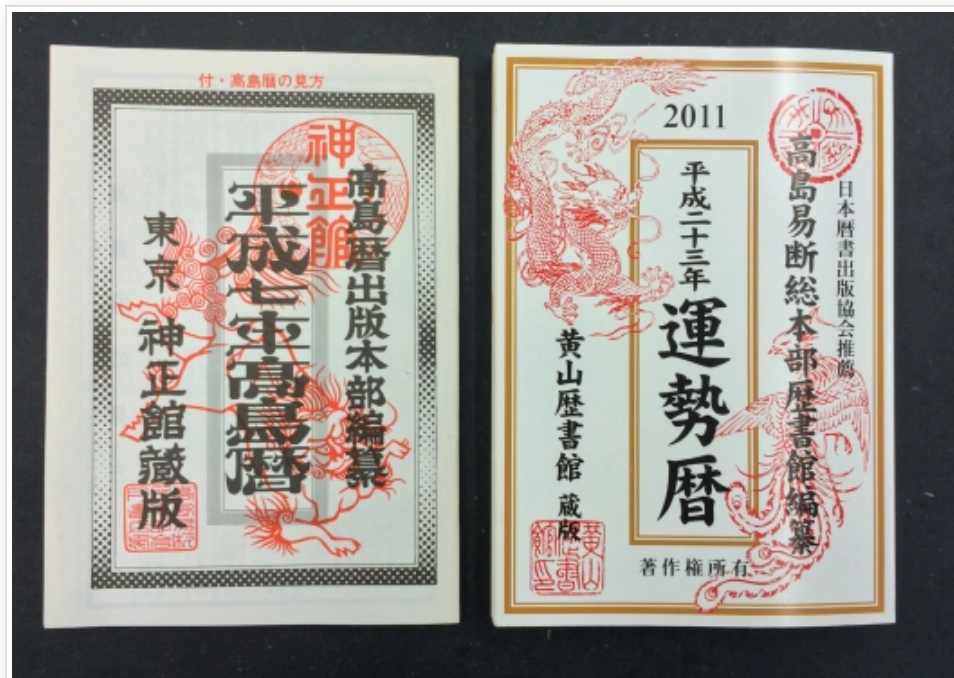 付・高島暦の見方
神正館
高島暦出版本部編纂
平成七年高島暦
東京 神正館藏版
2011
日本暦書出版協会推薦
高島易断総本部歴書館編纂
平成二十三年 運勢暦
黄山歴書館 蔵版
著作権所有